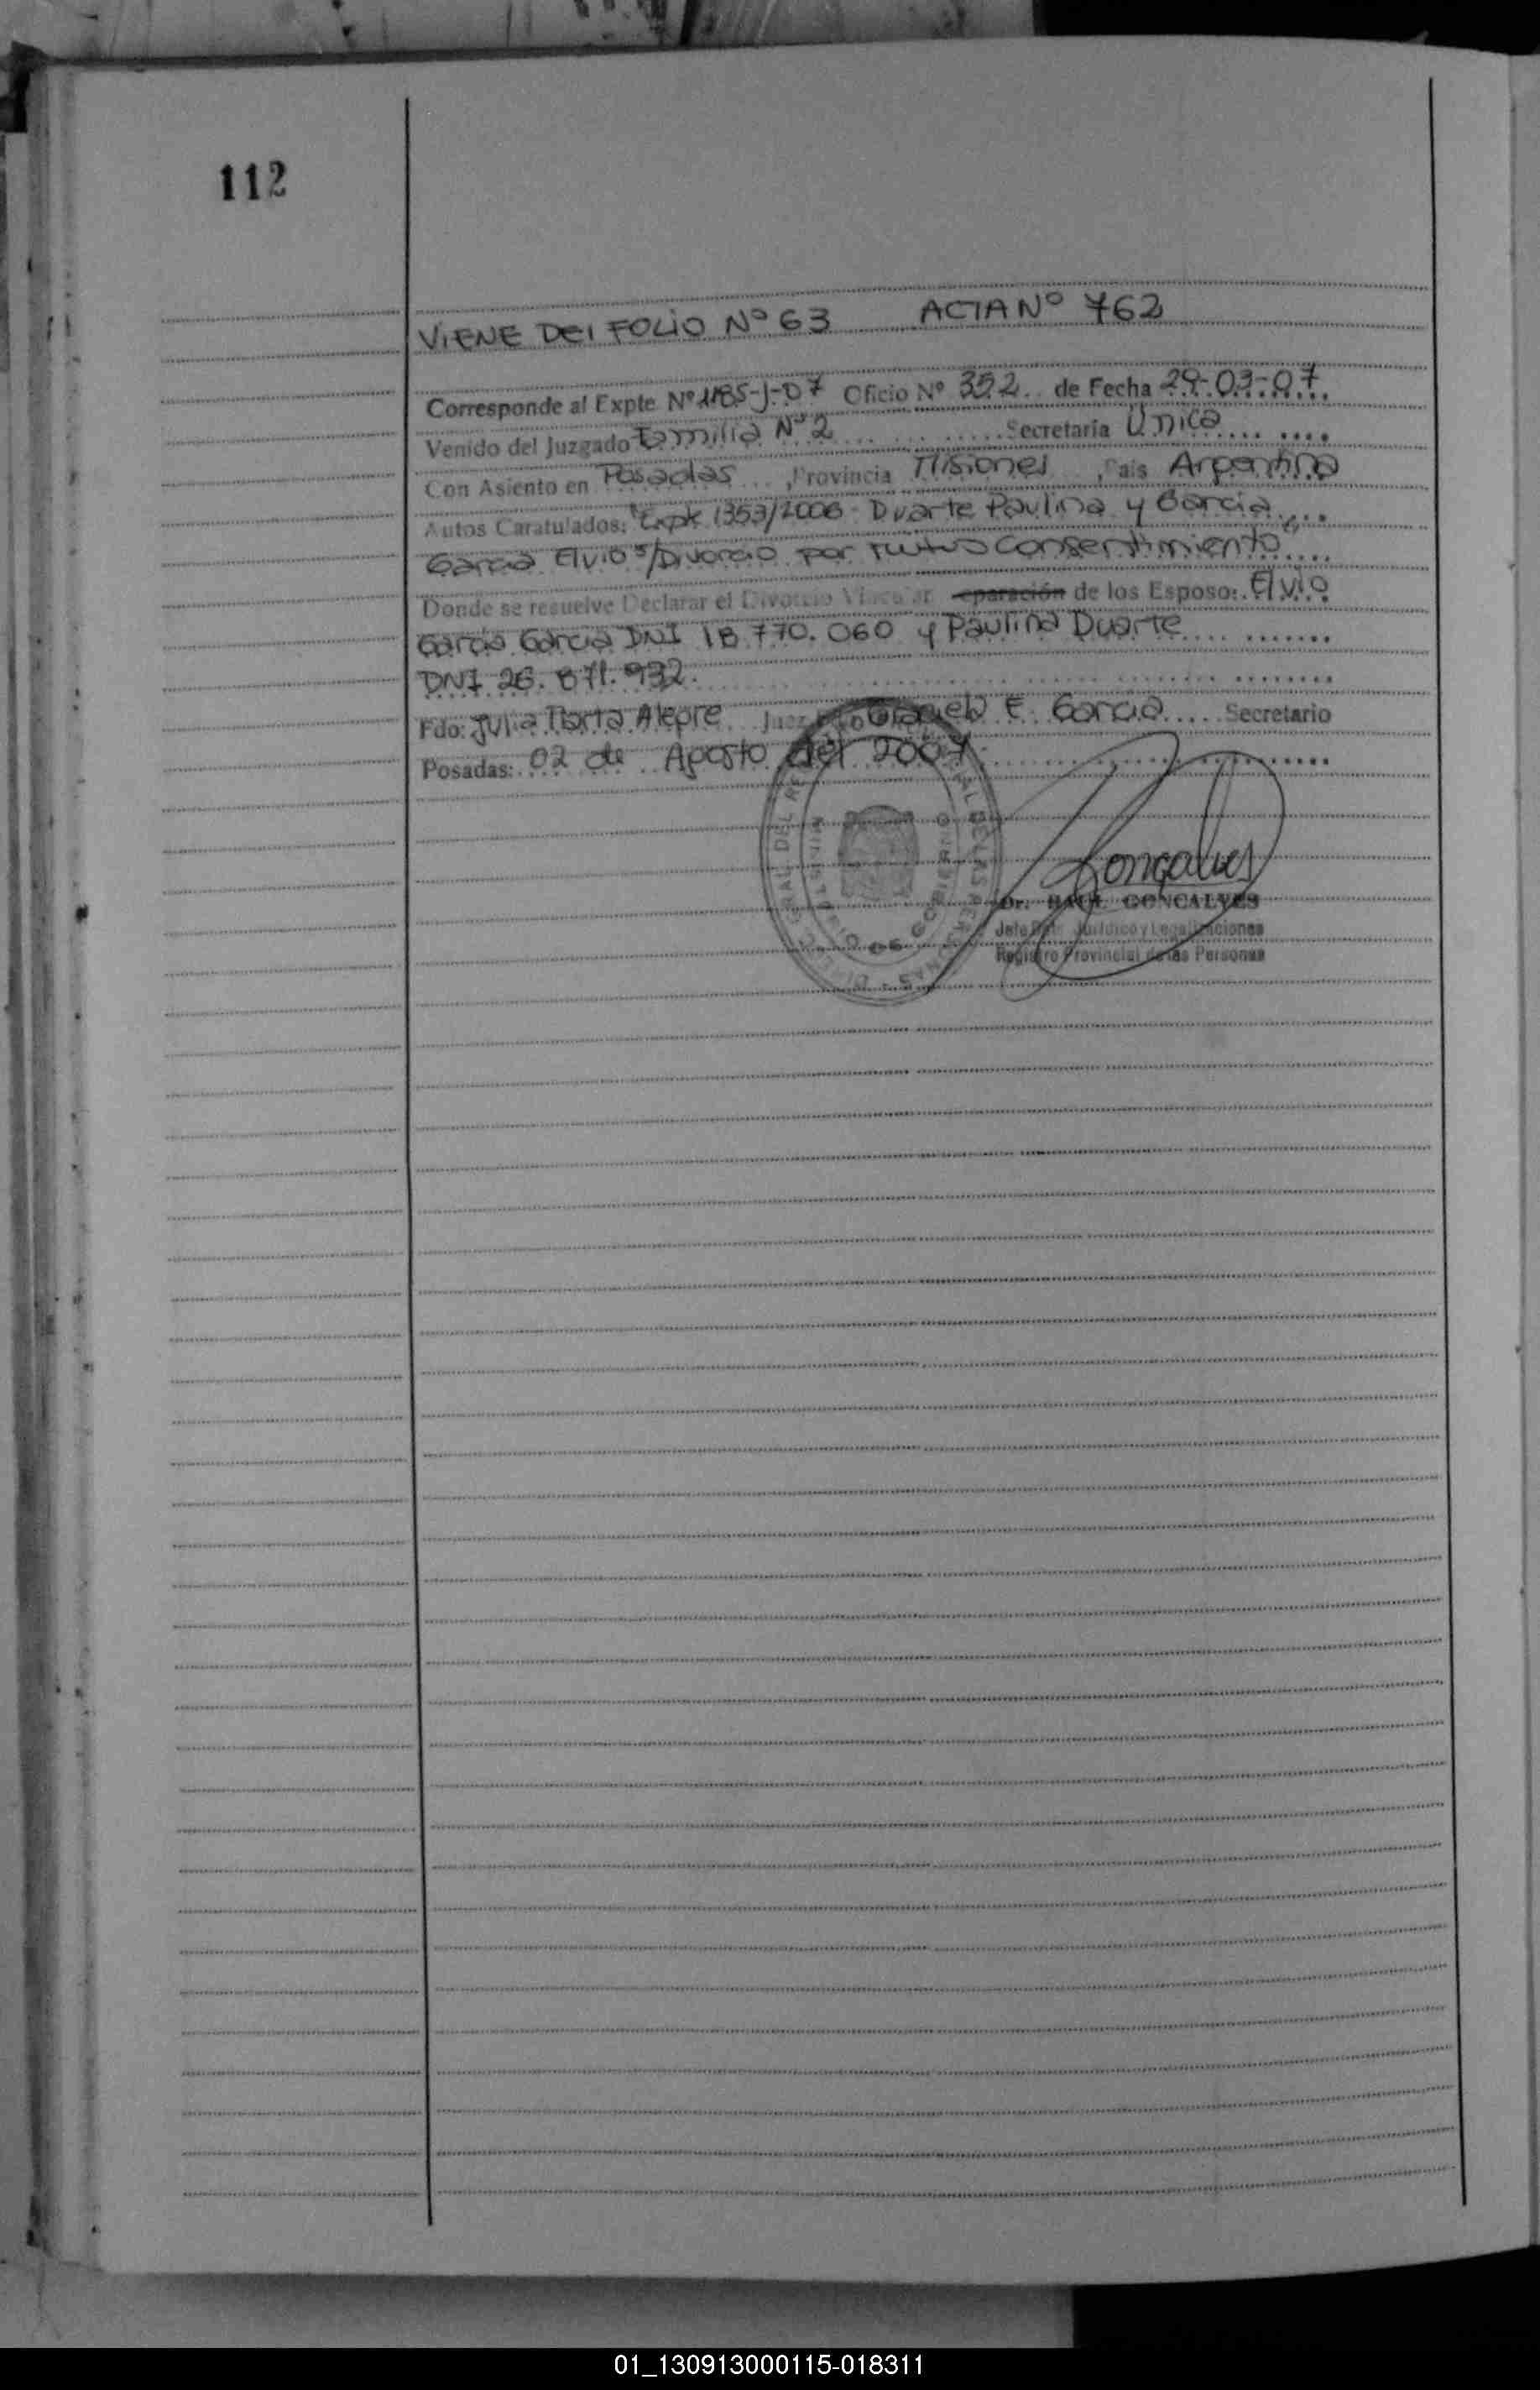 112
VIENE DEl FOLIO Nº 63 ACTA Nº 762
Corresponde al Expte Nº 1185-J-07 Oficio Nº 352.. de Fecha 29-03-07
Venido del Juzgado Familia Nº 2 Secretaría Única
Con Asiento en Posadas ,Provincia Misiones , País Argentina
Autos Caratulados: "Expte 1353/2006 Duarte Paulina y Garcia
Garcia Elvio s/Divorcio por Mutuo Consentimiento"
Donde se resuelve Declarar el Divorcio Vincular eparación de los Esposo: Elvio
Garcia Garcia DNI 18.770.060 y Paulina Duarte
DNI 26.871.932.
Fdo: Julia Marta Alegre Juez Graciela E. Garcia Secretario
Posadas: 02 de Agosto del 2007.
Goncalves
Dr. RAUL GONCALVES
Jefe Dpto Jurídico y Legalizaciones
Registro Provincial de las Personas
01_130913000115-018311